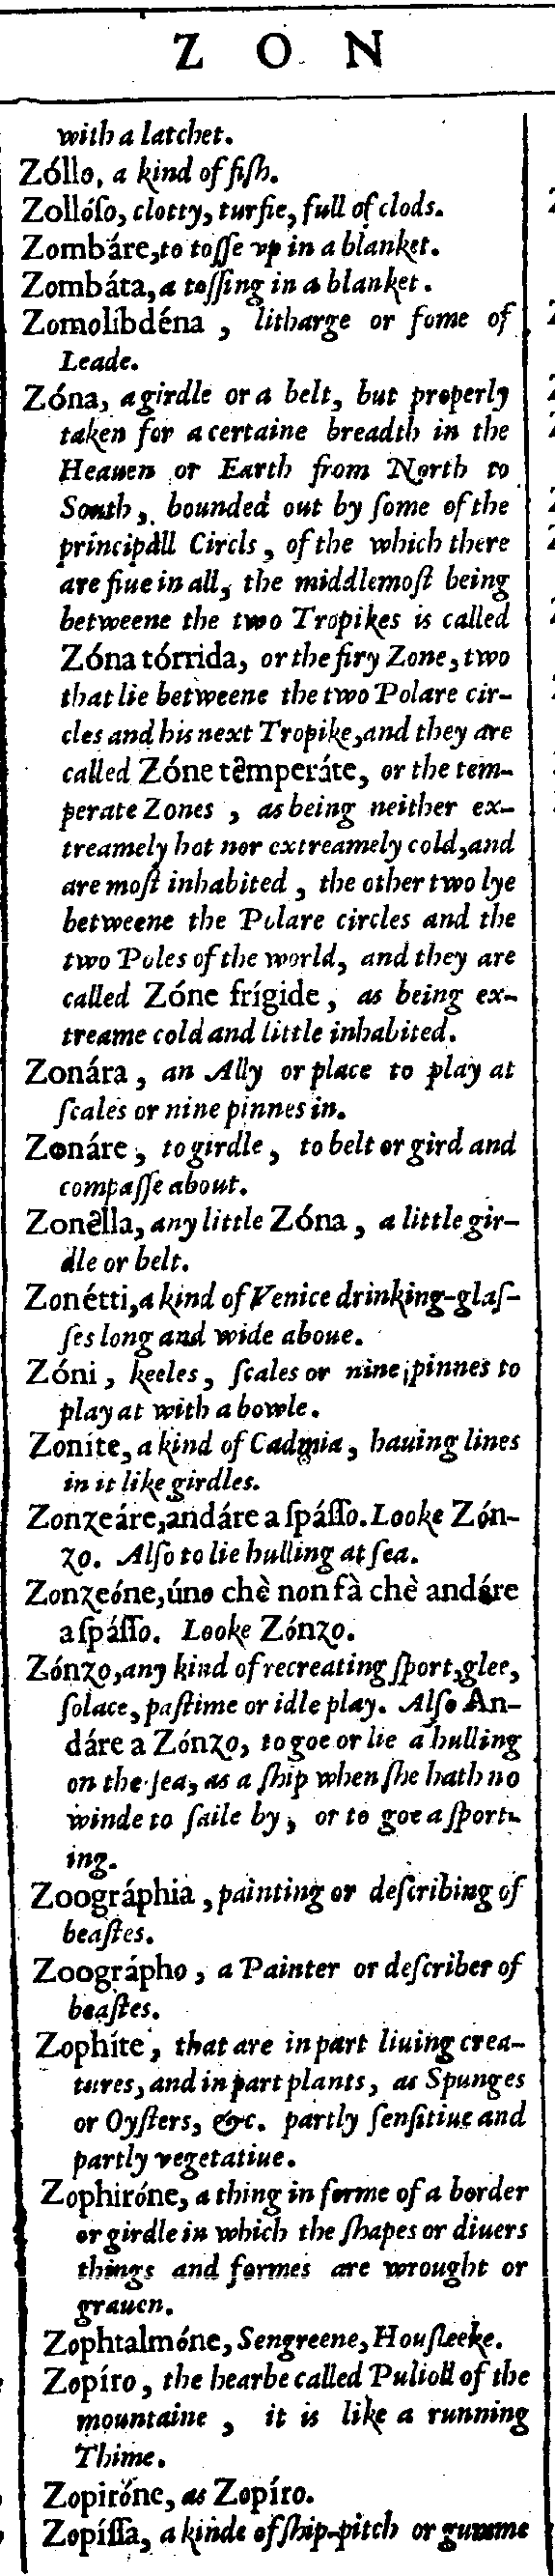 Z O N
with a latchet.
Zóllo, a kind of fiſh.
Zollóſo, clotty, turfie, full of clods.
Zombáre, to toſſe vp in a blanket.
Zombáta, a toſſing in a blanket.
Zomolibdéna, litharge or fome of
Leade.
Zóna, a girdle or a belt, but properly
taken for a certaine breadth in the
Heauen or Earth from North to
South, bounded out by ſome of the
principall Circls, of the which there
are fiue in all, the middlemoſt being
betweene the two Tropikes is called
Zóna tórrida, or the firy Zone, two
that lie betweene the two Polare cir-
cles and his next Tropike, and they are
called Zóne têmperáte, or the tem-
perate Zones, as being neither ex-
treamely hot nor extreamely cold, and
are moſt inhabited, the other two lye
betweene the Polare circles and the
two Poles of the world, and they are
called Zóne frígide, as being ex-
treame cold and little inhabited.
Zonára, an Ally or place to play at
ſcales or nine pinnes in.
Zonáre, to girdle, to belt or gird and
compaſſe about.
Zonêlla, any little Zóna, a little gir-
dle or belt.
Zonétti, a kind of Venice drinking-glaſ-
ſes long and wide aboue.
Zóni, keeles, ſcales or nine pinnes to
play at with a bowle.
Zoníte, a kind of Cadmia, hauing lines
in it like girdles.
Zonzeáre, andáre a ſpáſſo. Looke Zón-
zo. Alſo to lie hulling at ſea.
Zonzeóne, úno chè non fà chè andáre
a ſpáſſo. Looke Zónzo.
Zónzo, any kind of recreating ſport, glee,
ſolace, paſtime or idle play. Alſo An-
dáre a Zónzo, to goe or lie a hulling
on the ſea, as a ſhip when ſhe hath no
winde to ſaile by, or to goe a ſport-
ing.
Zoográphia, painting or deſcribing of
beaſtes.
Zoográpho, a Painter or deſcriber of
beaſtes.
Zophíte, that are in part liuing crea-
tures, and in part plants, as Spunges
or Oyſters, &c. partly ſenſitiue and
partly vegetatiue.
Zophiróne, a thing in forme of a border
or girdle in which the ſhapes or diuers
things and formes are wrought or
grauen.
Zophtalmóne, Sengreene, Houſleeke.
Zopíro, the hearbe called Pulioll of the
mountaine, it is like a running
Thime.
Zopiróne, as Zopíro.
Zopíſſa, a kinde of ſhip-pitch or gumme